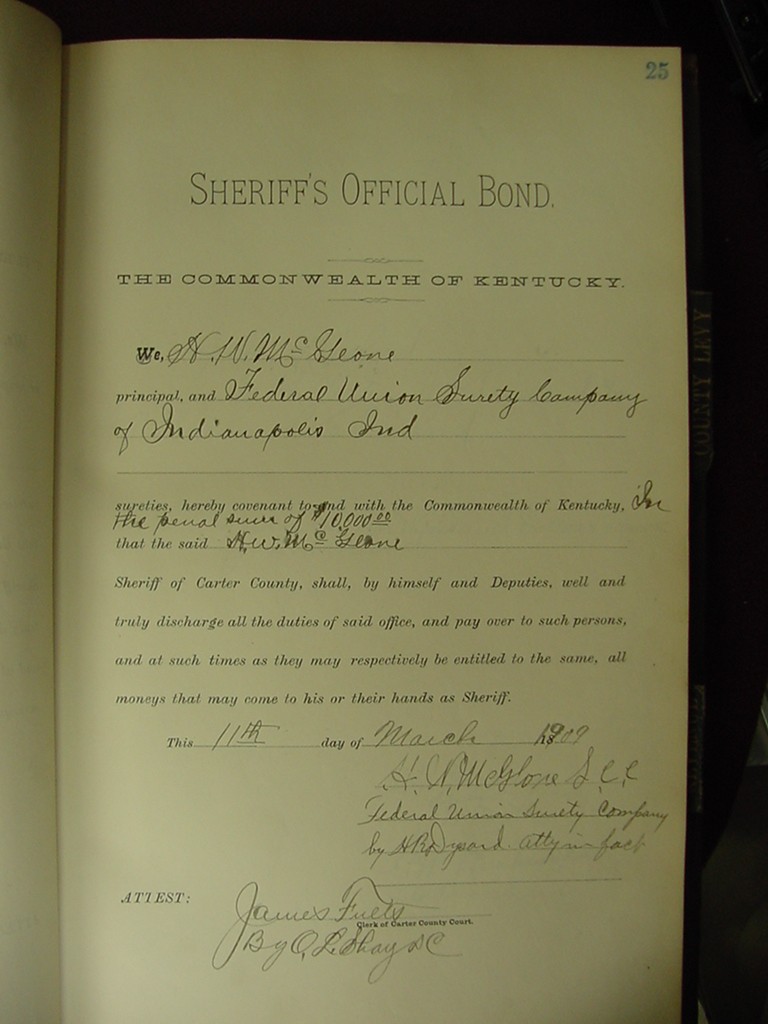 25
SHERIFF'S OFFICIAL BOND.
THE COMMONWEALTH OF KENTUCKY.
We, H. W. McGlone
principal, and Federal Union Surety Company
of Indianapolis Ind
sureties, hereby covenant to and with the Commonwealth of Kentucky, In
the penal sum of $10,000.00
that the said H. W. McGlone
Sheriff of Carter County, shall, by himself and Deputies, well and
truly discharge all the duties of said office, and pay over to such persons,
and at such times as they may respectively be entitled to the same, all
moneys that may come to his or their hands as Sheriff.
This 11th day of March 1909
H. W. McGlone S. C. C
Federal Union Surety Company
by H R Dysard atty in fact
ATTEST:
James
Clerk of Carter County Court.
By O. L. Shay DC
COUNTY LEVY